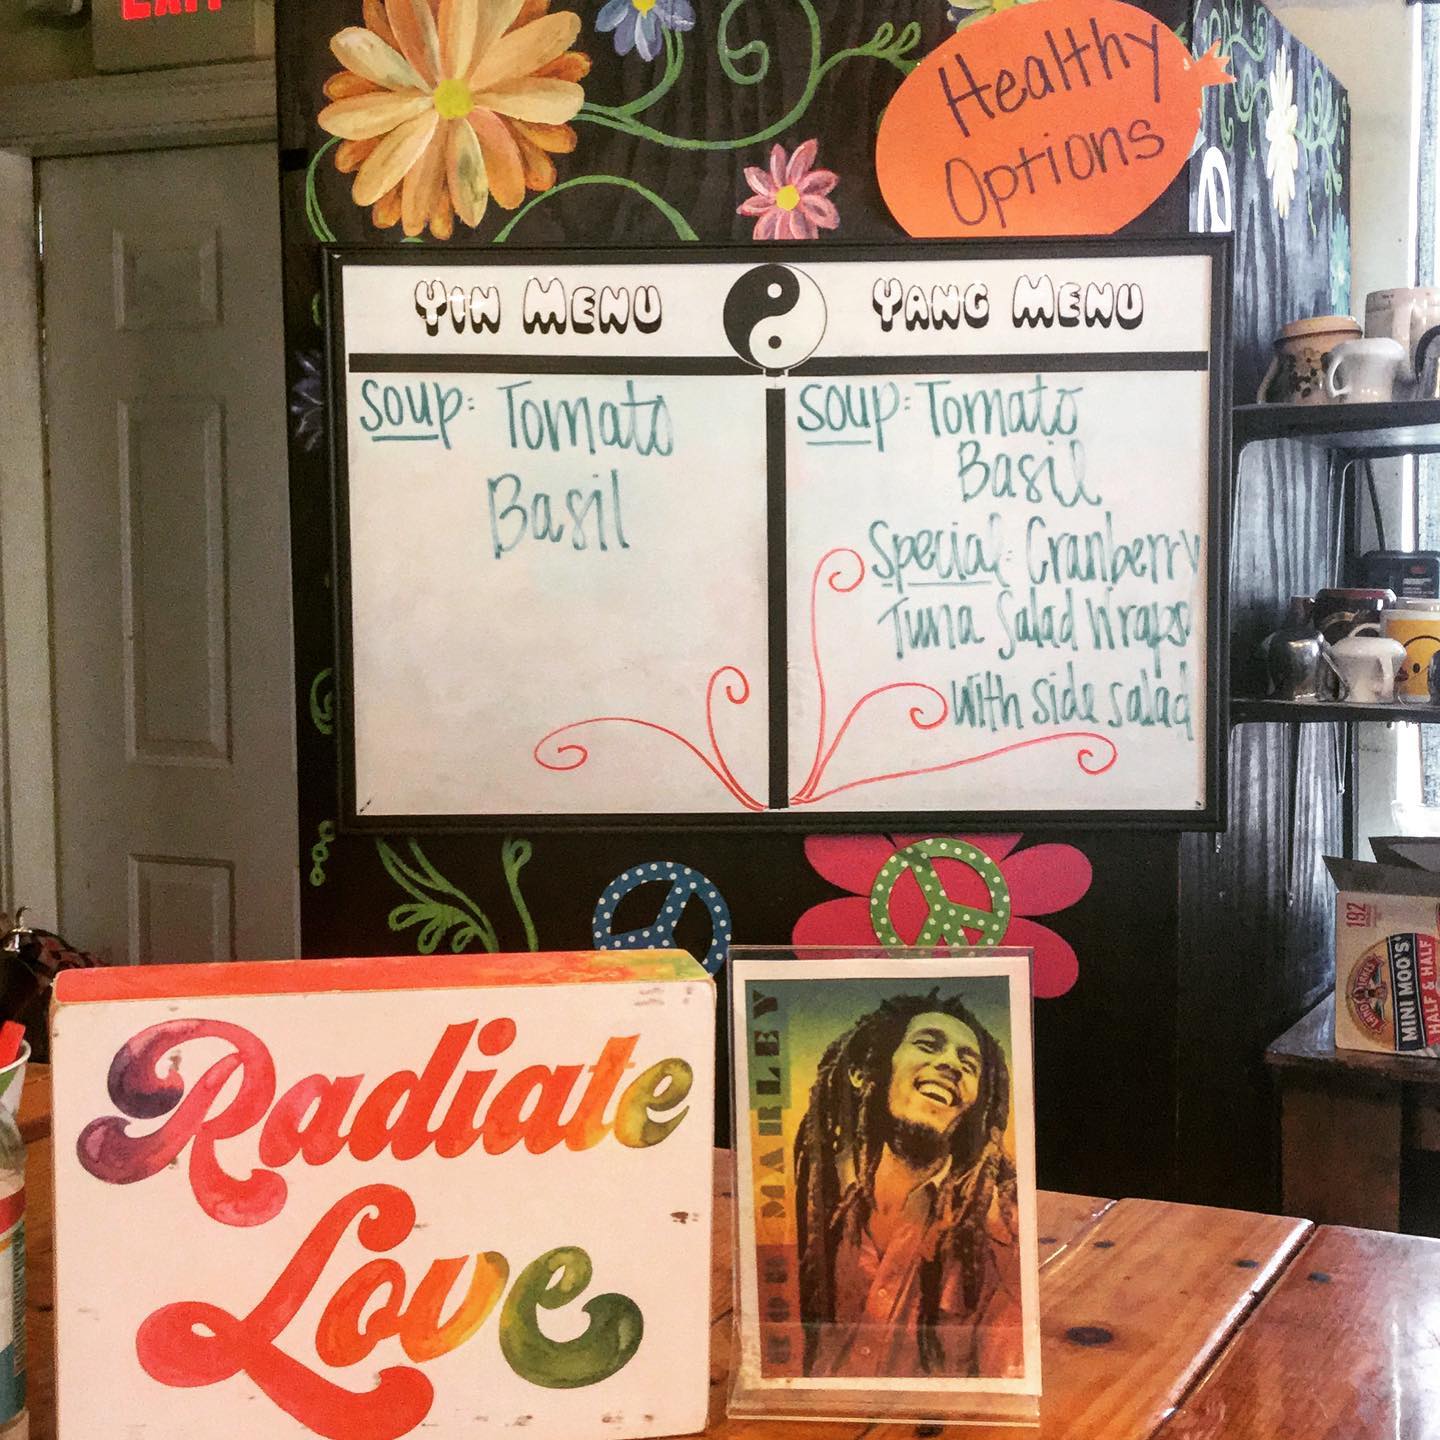 EXIT
Healthy
Options
YIN MENU
YANG MENU
Soup: Tomato
Basil
Soup: Tomato
Basil
Special: Cranberry
Tuna Salad Wraps
with side salad
Radiate
Love
BOB MARLEY
192
MINI MOO'S
HALF & HALF